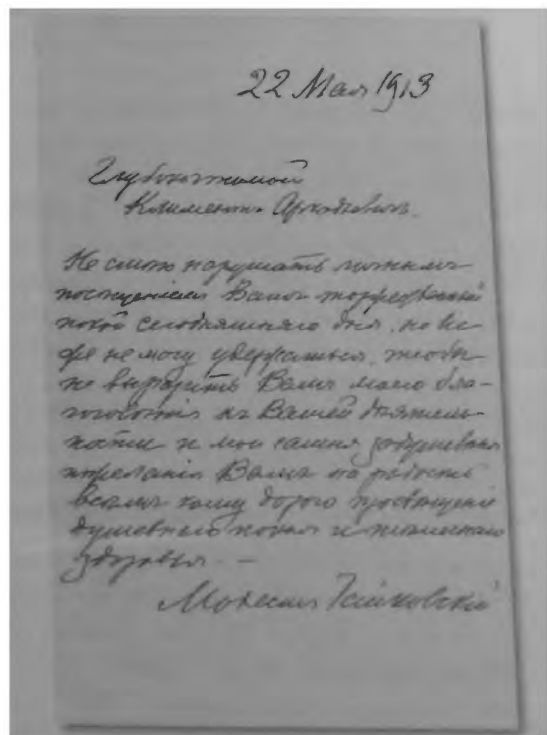 22 Мая 1913
Глубокочтимый
Климентий Аркадьевич.
Не смею нарушать личным
посещением Вашъ
покой сегодняшняго дня, но все
же не могу удержаться, чтобы
не выразить Вамъ моего бла-
гоговѣнія къ Вашей дѣятель-
ности и мои самыя задушевныя
пожеланія Вамъ на радость
всѣмъ кому дорого просвѣщеніе
душевнаго покоя и
здоровья. —
Модестъ Чайковскій